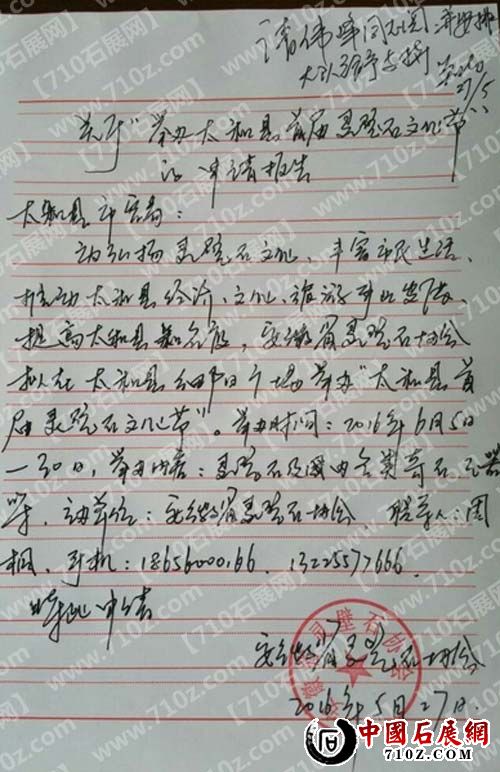 请伟峰同志阅 并安排
大队
27/5
关于"举办太和县首届灵璧石文化节
的申请报告
太和县
为弘扬灵璧石文化、丰富市民生活、
推动太和县经济、文化、旅游事业发展、
提高太和县知名度，安徽省灵璧石协会
拟在太和县 广场举办"太和县首
届灵璧石文化节"。举办时间：2016年6月5日
—30日，举办内容：灵璧石及国内各类奇石、
等，主办单位：安徽省灵璧石协会，联系人：周
桐，手机：18656000166. 13225577666.
特此申请
安徽省灵璧石协会
2016年5月27日.
安徽省灵璧石协会
【710石展网】
www.710z.com
中國石展網
710Z.COM